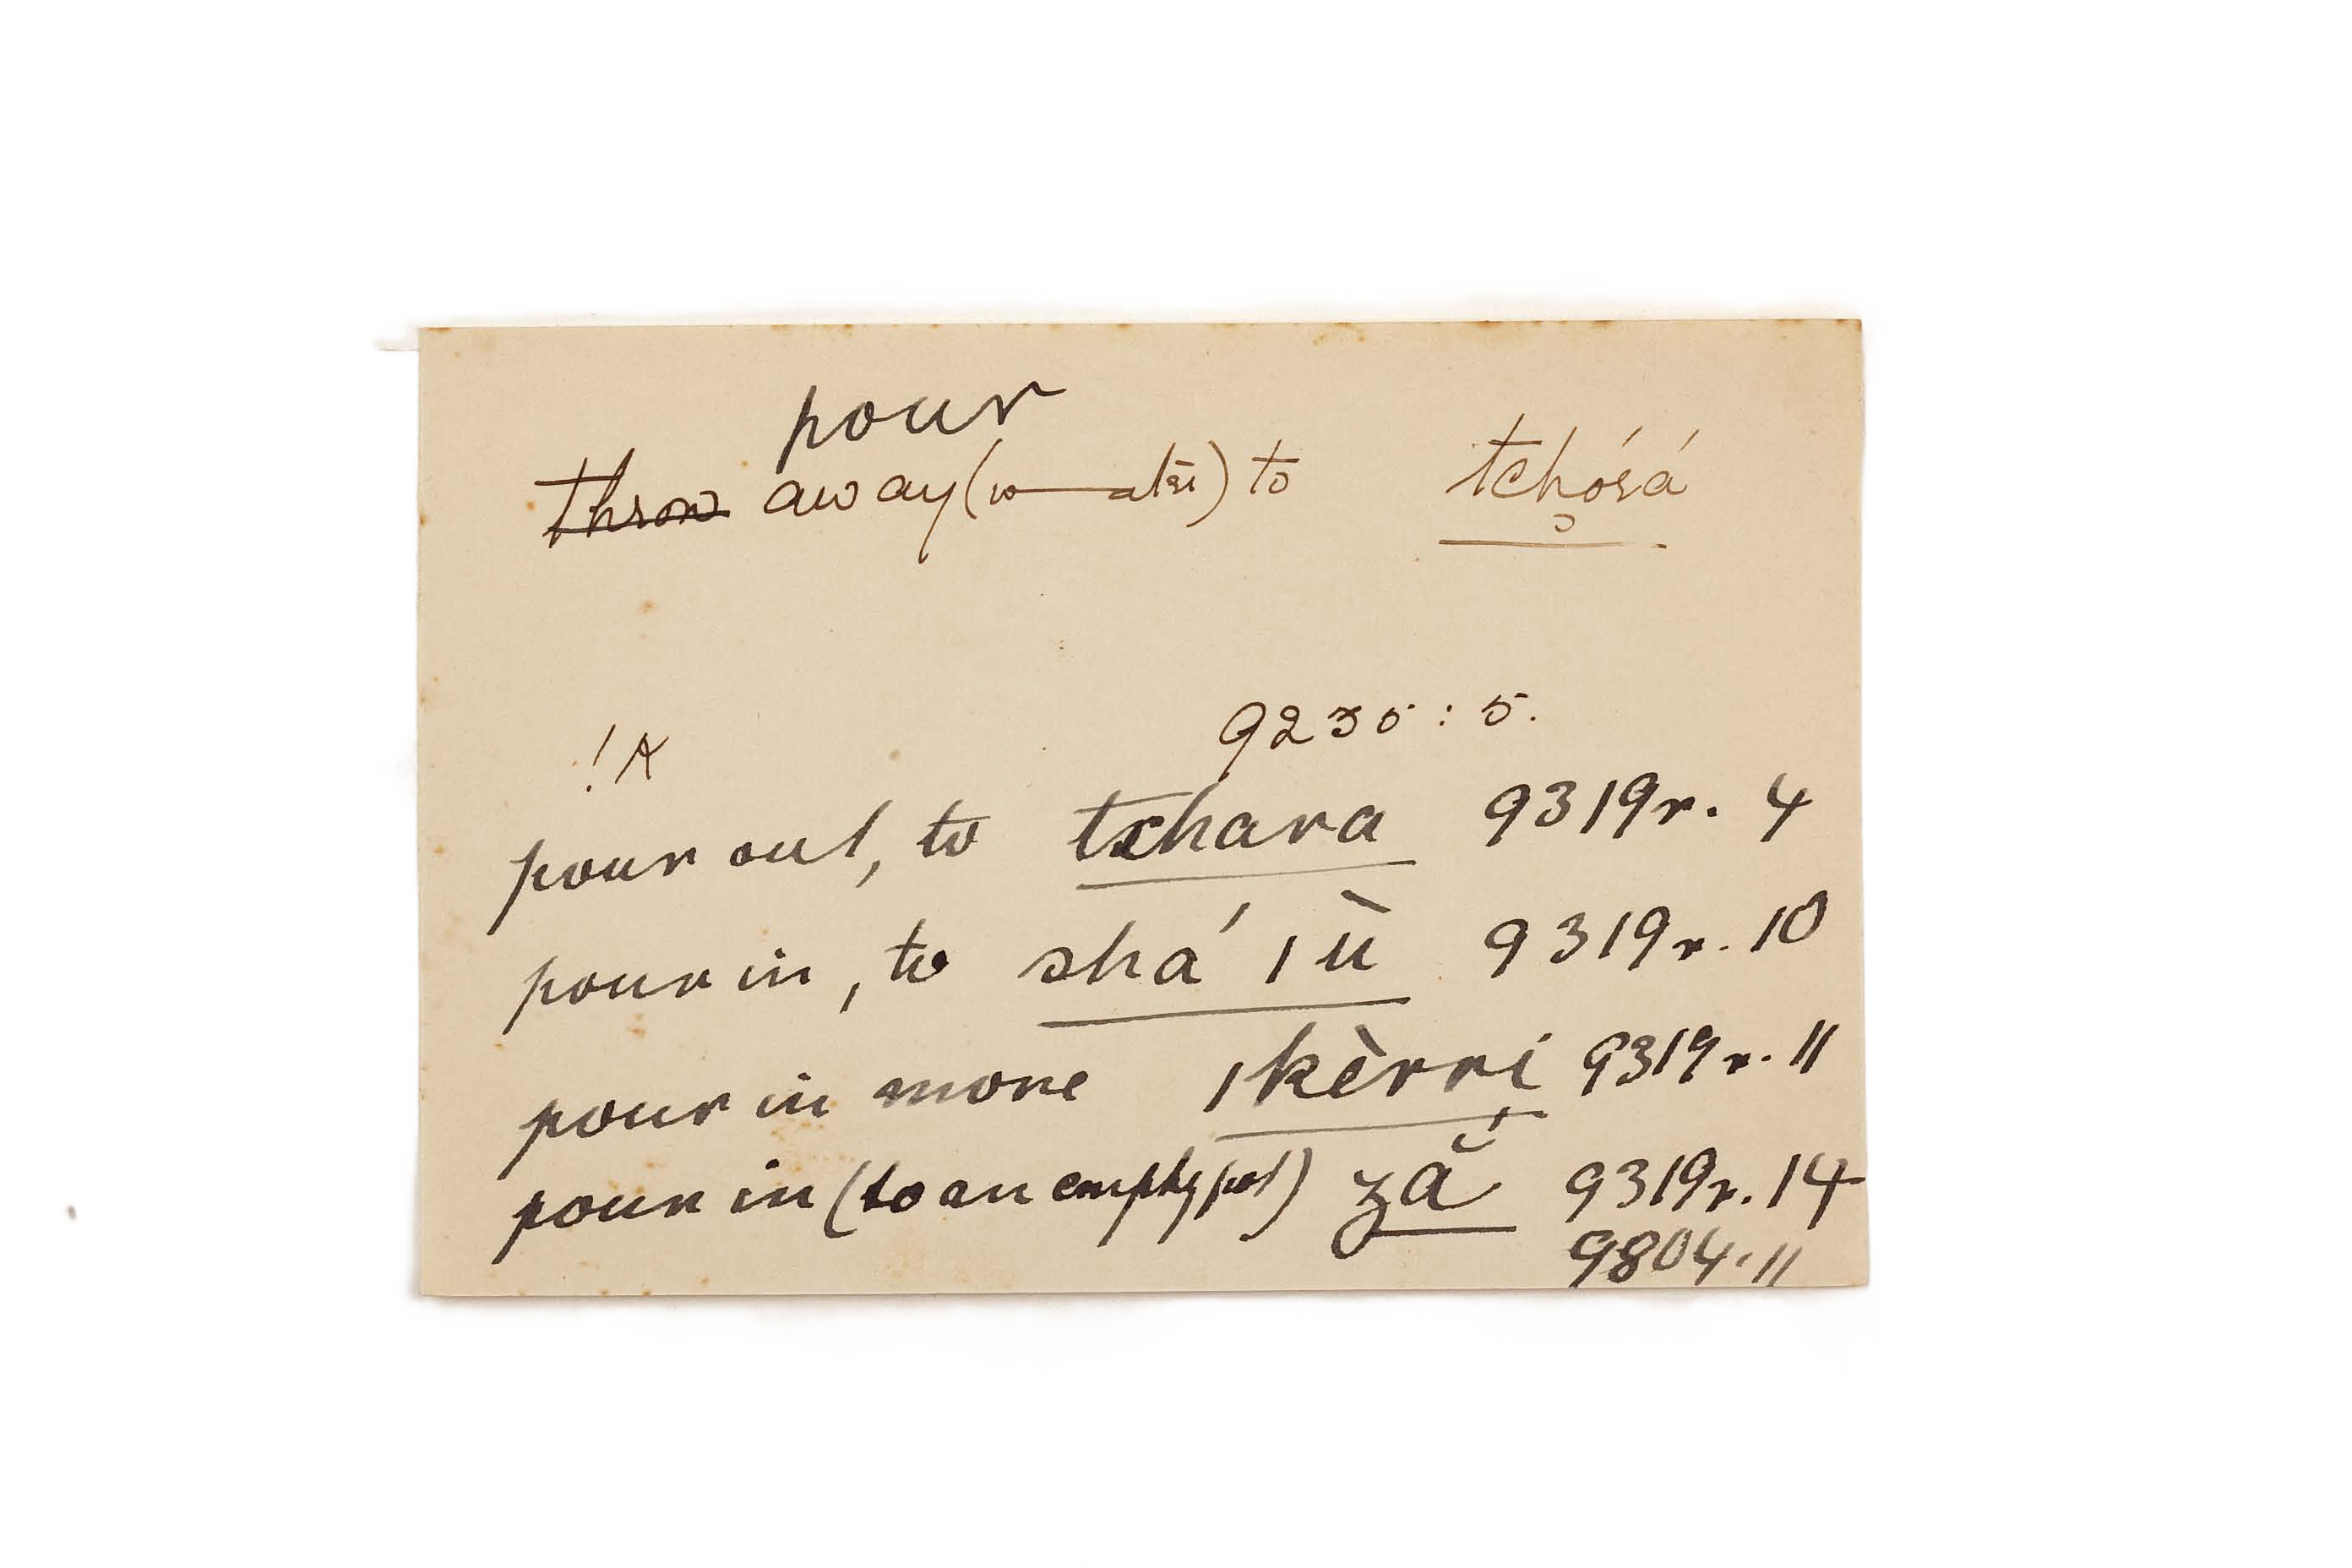 pour
throw away (water) to tchórá
9235 : 5.
!A
pour out, to tchara 9319r. 4
pour in, to shá ı ù 9319r. 10
pour in more ıkèrri 9319r. 11
pour in (to an empty pot) ză 9319r. 14
9804. 11